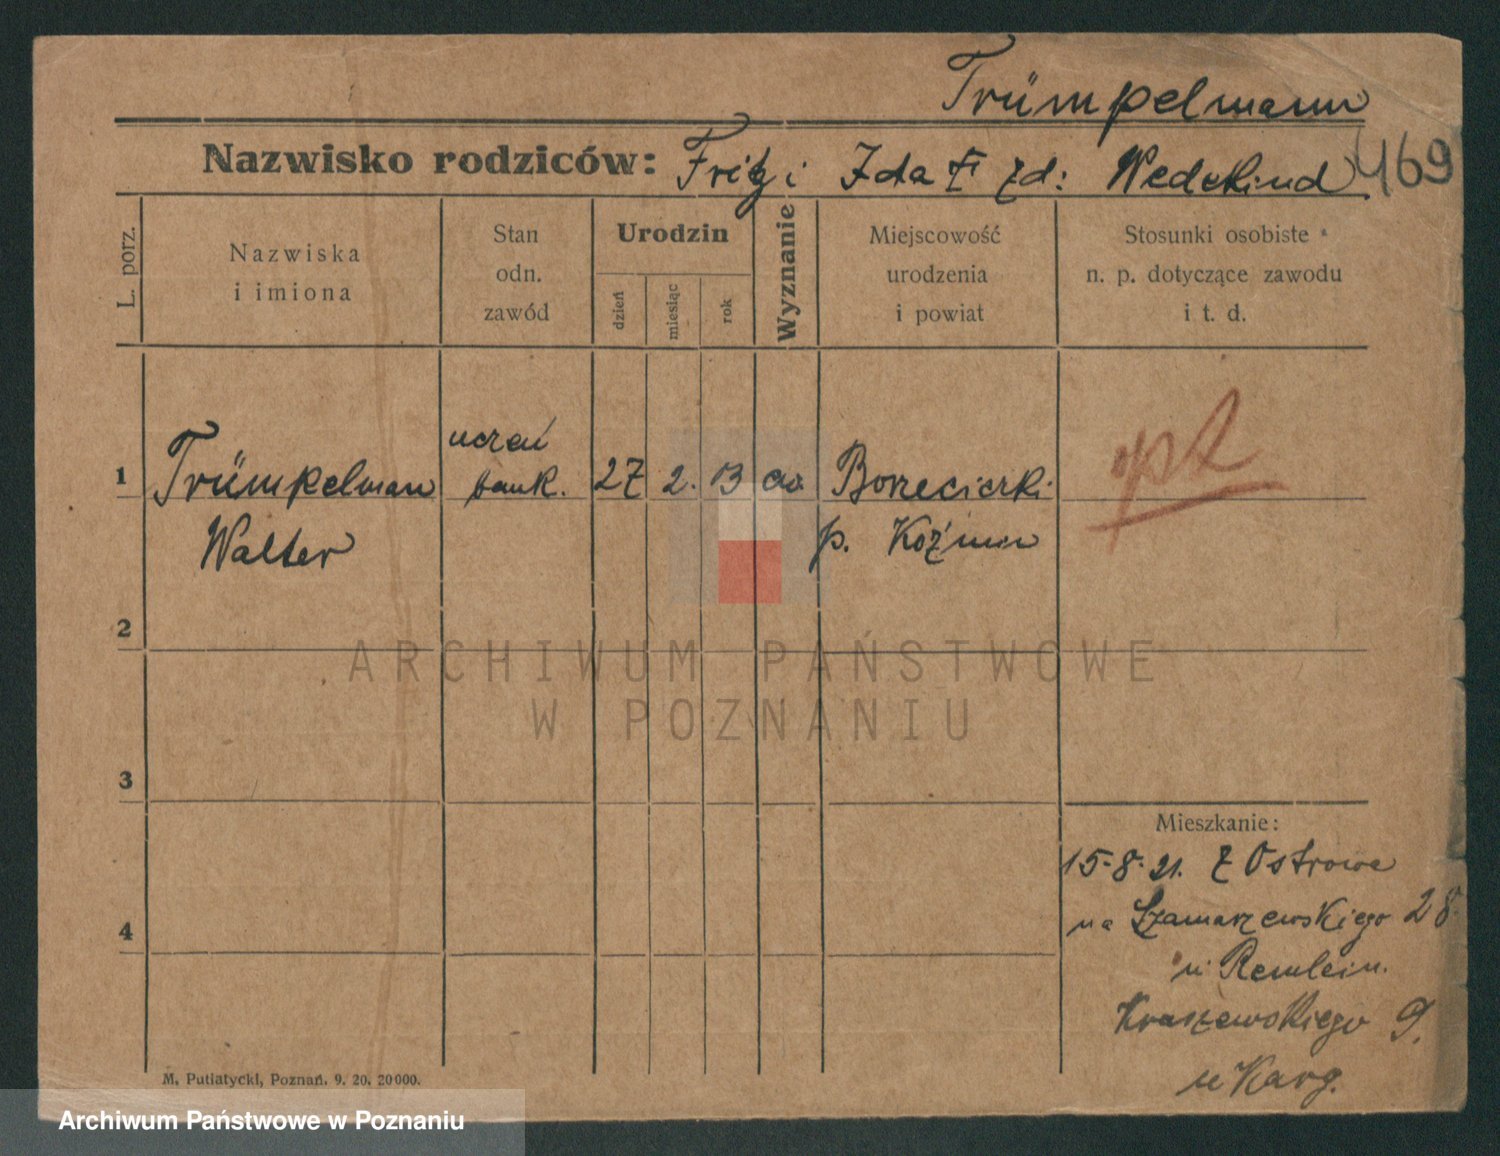 Trümpelmann
Nazwisko rodziców: Fritz i Ida zd: Wedekind 469
L. porz.
Nazwiska
i imiona
Stan
odn.
zawód
Urodzin
dzień
miesiąc
rok
Wyznanie
Miejscowość
urodzenia
i powiat
Stosunki osobiste
n. p. dotyczące zawodu
i t. d.
1
Trümpelman
Walter
uczeń
bank.
27
2.
13
ew.
Borzęciczki
p. Koźmin
opt
2
3
4
Mieszkanie:
15.8.21. z Ostrowa
na Szamarzewskiego 28
u Remlein.
Kraszewskiego 9.
u Karg.
M. Putiatycki, Poznań. 9. 20. 20000.
ARCHIWUM PAŃSTWOWE
W POZNANIU
Archiwum Państwowe w Poznaniu